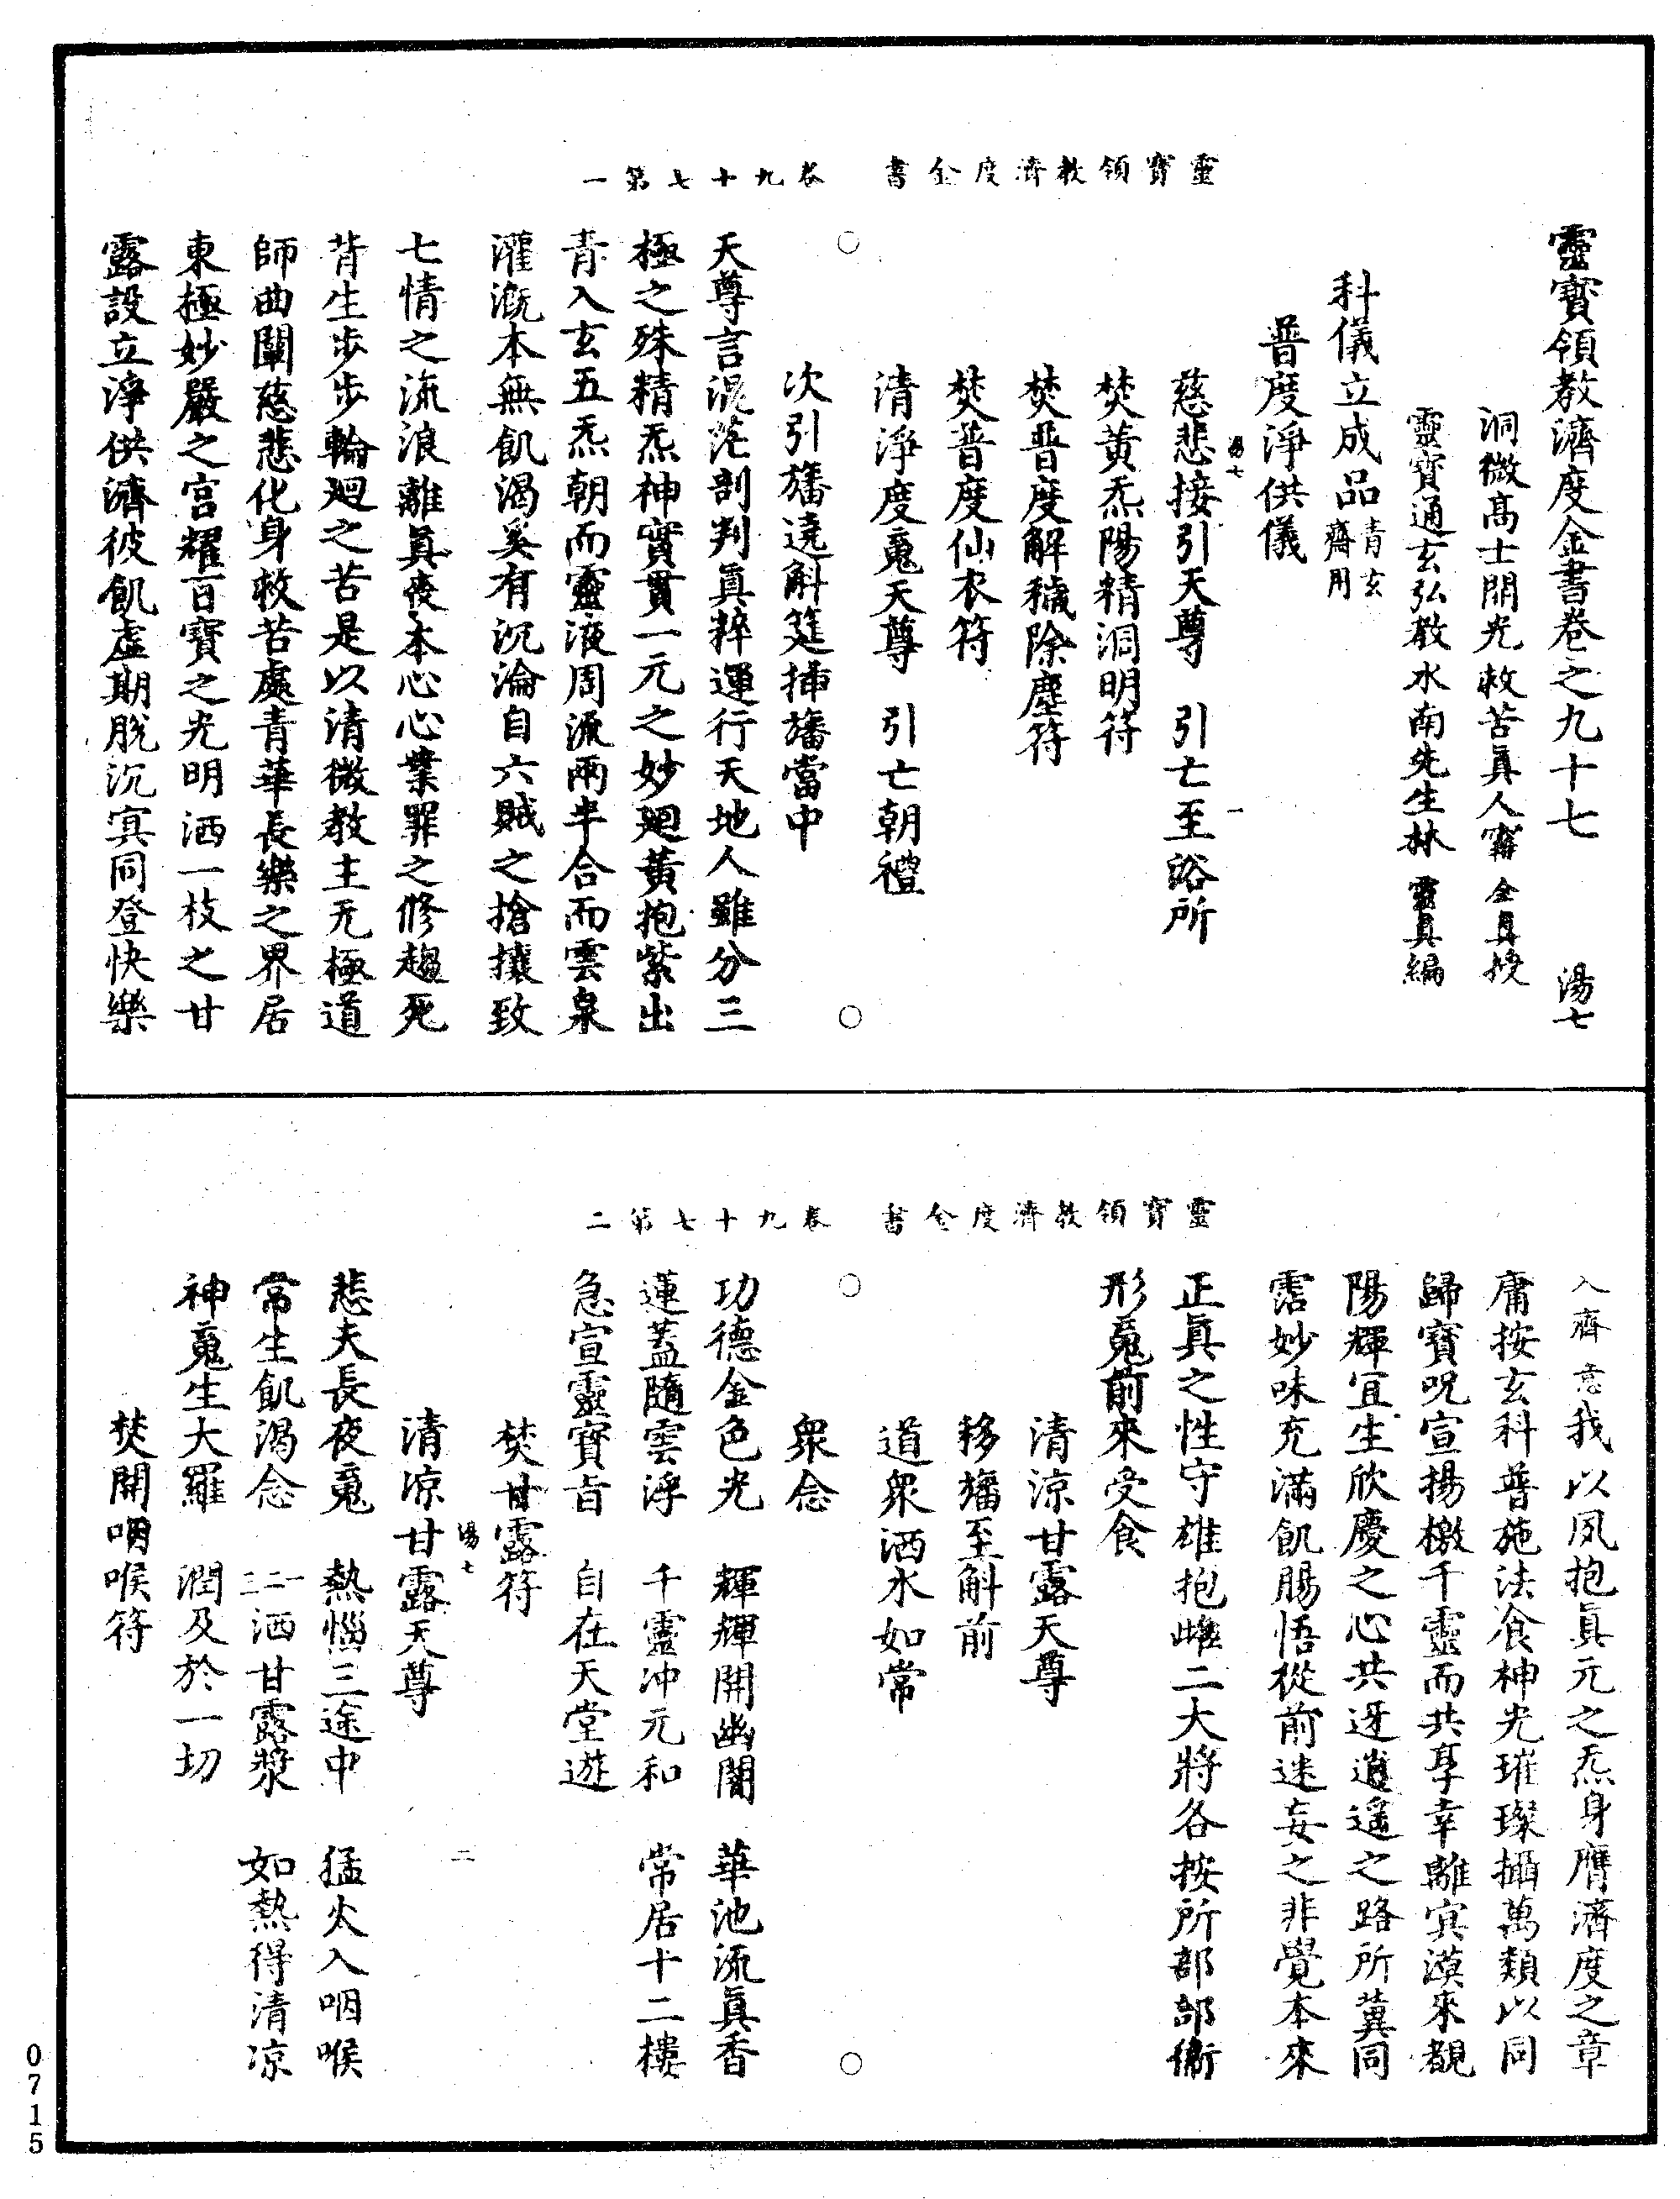 靈寶領教濟度金書卷之九十七　湯七
洞微高士開光救苦眞人甯　全眞授
靈寶通玄弘教水南先生林　靈眞編
科儀立成品青玄齋用
普度淨供儀
湯七　一
慈悲接引天尊　引亡至浴所
焚黃炁陽精洞明符
焚普度解穢除塵符
焚普度仙衣符
清淨度䰟天尊　引亡朝禮
靈寶領教濟度金書　卷九十七第一
次引旛遶斛筵揷旛當中
天尊言混茫剖判眞粹運行天地人雖分三
極之殊精炁神實貫一元之妙廻黃抱紫出
青入玄五炁朝而靈液周流兩半合而雲泉
灌漑本無飢渴奚有沉淪自六賊之搶攘致
七情之流浪離眞夜本心心業罪之修趨死
背生步步輪廻之苦是以清微教主无極道
師曲闡慈悲化身救苦處青華長樂之界居
東極妙嚴之宮耀百寶之光明洒一枝之甘
露設立淨供濟彼飢虛期脫沉㝠同登快樂
入齋意我以夙抱眞元之炁身膺濟度之章
庸按玄科普施法食神光璀璨攝萬類以同
歸寶呪宣揚檄千靈而共享幸離㝠漠來覩
陽輝宜生欣慶之心共迓逍遥之路所冀同
霑妙味充滿飢腸悟從前迷妄之非覺本來
正眞之性守雄抱雌二大將各按所部部衛
形䰟前來受食
清涼甘露天尊
移旛至斛前
道衆洒水如常
靈寶領教濟度金書　卷九十七第二
衆念
功德金色光　輝輝開幽闇　華池流眞香
蓮蓋隨雲浮　千靈冲元和　常居十二樓
急宣靈寶旨　自在天堂遊
焚甘露符
湯七　二
清凉甘露天尊
悲夫長夜䰟　熱惱三途中　猛火入咽喉
常生飢渴念　一二三洒甘露漿　如熱得清凉
神䰟生大羅　潤及於一切
焚開咽喉符
0715